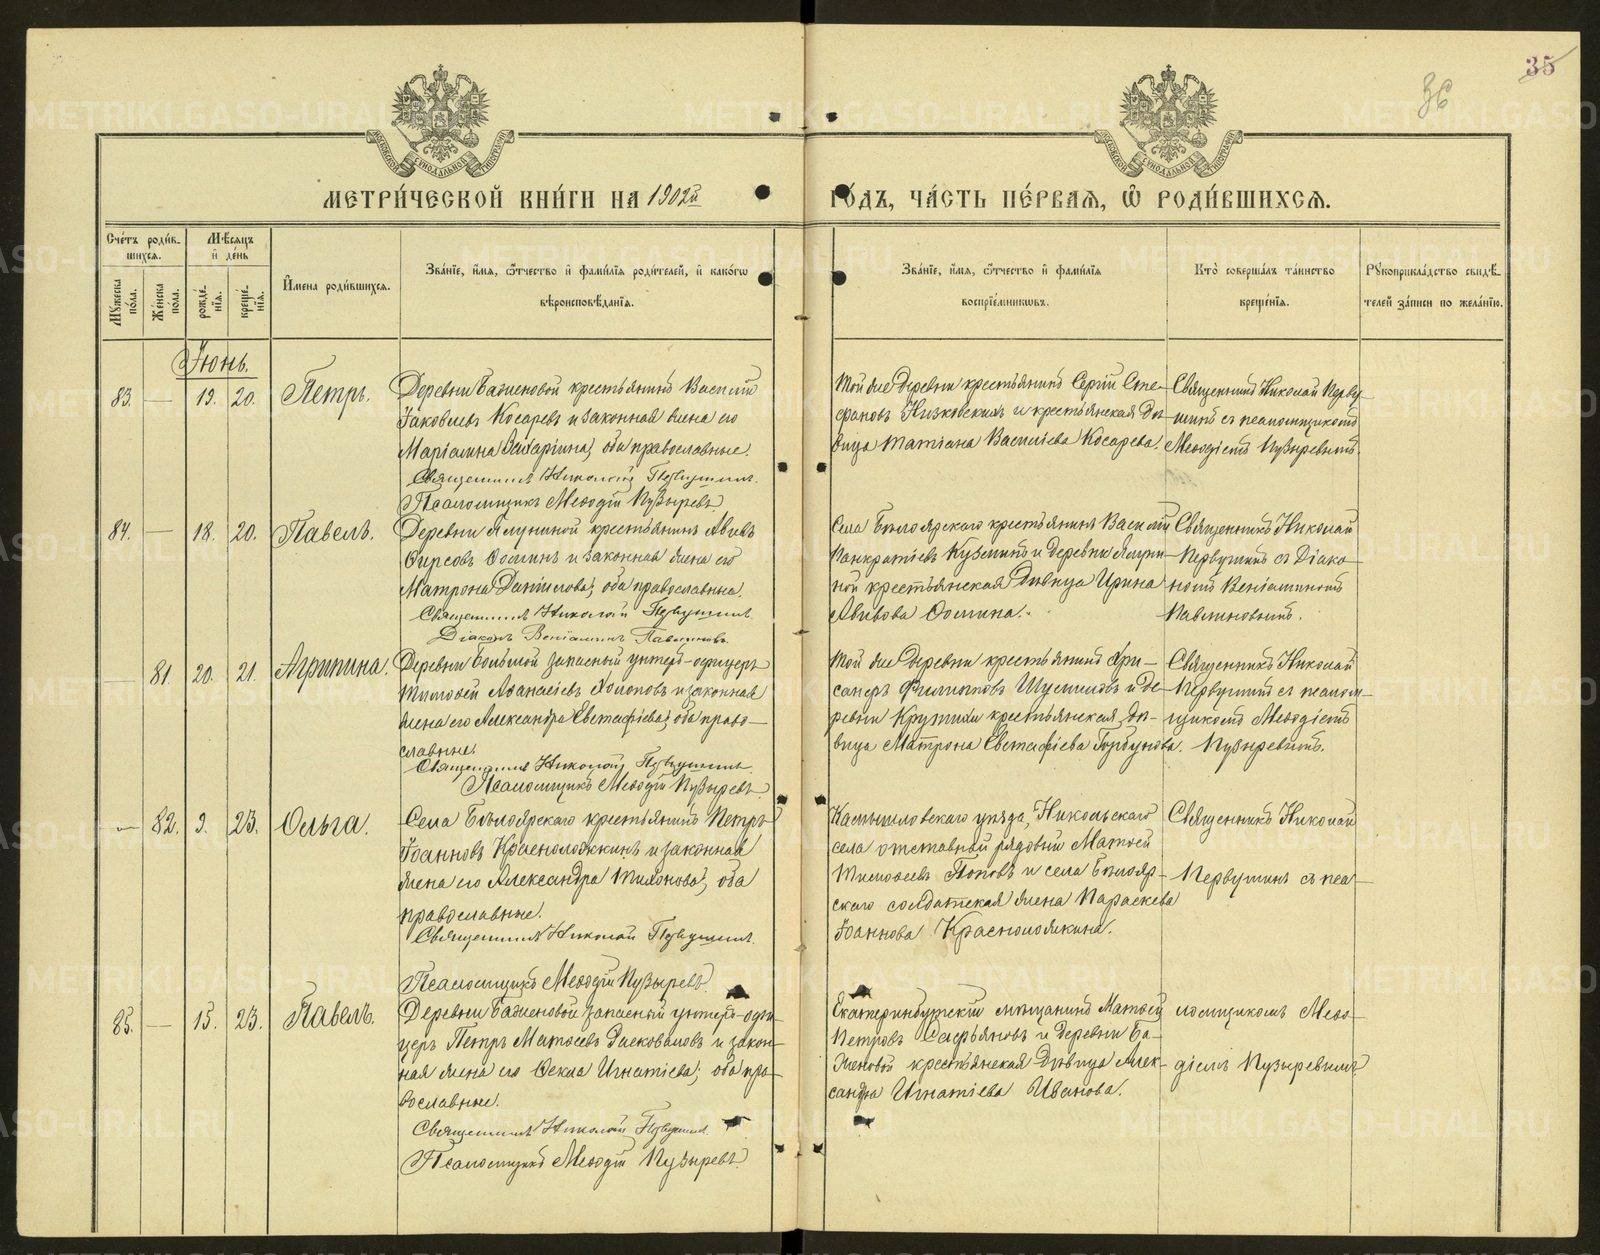 35
36
МЕТРИ́ЧЕСКОЙ КНИ́ГИ НА 1902й ГО́ДЪ, ЧА́СТЬ ПЕ́РВАЯ, Ѡ РОДИ́ВШИХСЯ.
Сче́тъ роди́в-
шихся.
Мꙋ́жеска по́ла.
Же́нска по́ла.
Мѣ́сяцъ и́ де́нь
рожде́-нїя.
креще́-нїя.
И́мена роди́вшихся.
Зва́нїе, и́мя, ѻ́тчество и́ фами́лїя роди́телей, и́ како́гѡ
вѣроисповѣ́данїя.
Зва́нїе, и́мя, ѻ́тчество и́ фами́лїя
воспрїе́мникѡвъ.
Кто̀ соверша́лъ та́инство
креще́нїя.
Рꙋкоприкла́дство свидѣ́-
телей за́писи по жела́нїю.
Іюнь.
83. — 19. 20. Петръ.
Деревни Баженовой крестьянинъ Василій
Іаковлевъ Косаревъ и законная жена его
Маріамна Захаріина, оба православные.
Священникъ Николай Первушинъ.
Псаломщикъ Меѳодій Пузыревъ
Той же деревни крестьянинъ Сергій Сте-
фановъ Низковскихъ и крестьянская дѣ-
вица Татіана Василіева Косарева.
Священникъ Николай Перву-
шинъ съ псаломщикомъ
Меѳодіемъ Пузыревымъ.
84. — 18. 20. Павелъ.
Деревни Ялуниной крестьянинъ Авивъ
Ѳирсовъ Ѳоминъ и законная жена его
Матрона Даніилова, оба православные.
Священникъ Николай Первушинъ
Діаконъ Веніаминъ Павлиновъ.
Села Бѣлоярского крестьянинъ Василій
Панкратіевъ Кузминъ и деревни Ялуни-
ной крестьянская дѣвица Ирина
Авивова Ѳомина.
Священникъ Николай
Первушинъ съ Діако-
номъ Веніаминомъ
Павлиновымъ.
— 81. 20. 21. Агрипина.
Деревни Большой запасный унтеръ-офицеръ
Тимоѳей Аѳанасіевъ Холоповъ и законная
жена его Александра Евстафіева, оба право-
славные.
Священникъ Николай Первушинъ
Псаломщикъ Меѳодій Пузыревъ
Той же деревни крестьянинъ Хри-
санфъ Филиповъ и де-
ревни Крутихи крестьянская дѣ-
вица Матрона Евстафіева Горбунова.
Священникъ Николай
Первушинъ съ псалом-
щикомъ Меѳодіемъ
Пузыревымъ.
— 82. 9. 23. Ольга.
Села Бѣлоярского крестьянинъ Петръ
Іоанновъ Краснопожкинъ и законная
жена его Александра Тихонова, оба
православные.
Священникъ Николай Первушинъ.
Псаломщикъ Меѳодій Пузыревъ.
Камышловского уѣзда, Никольского
села отставный рядовый Матѳей
Тимоѳеевъ Поповъ и села Бѣлояр-
ского солдатская жена Параскева
Іоаннова
Священникъ Николай
Первушинъ съ пса-
85. — 15. 23. Павелъ.
Деревни Баженовой запасный унтеръ-офи-
церъ Петръ Матѳеевъ и закон-
ная жена его Ѳекла Игнатіева, оба пра-
вославные.
Священникъ Николай Первушинъ.
Псаломщикъ Меѳодій Пузыревъ.
Екатеринбургскій мѣщанинъ Матѳей
Петровъ Сафьяновъ и деревни Ба-
женовой крестьянская дѣвица Алек-
сандра Игнатіева Иванова.
ломщикомъ Меѳо-
діемъ Пузыревымъ.